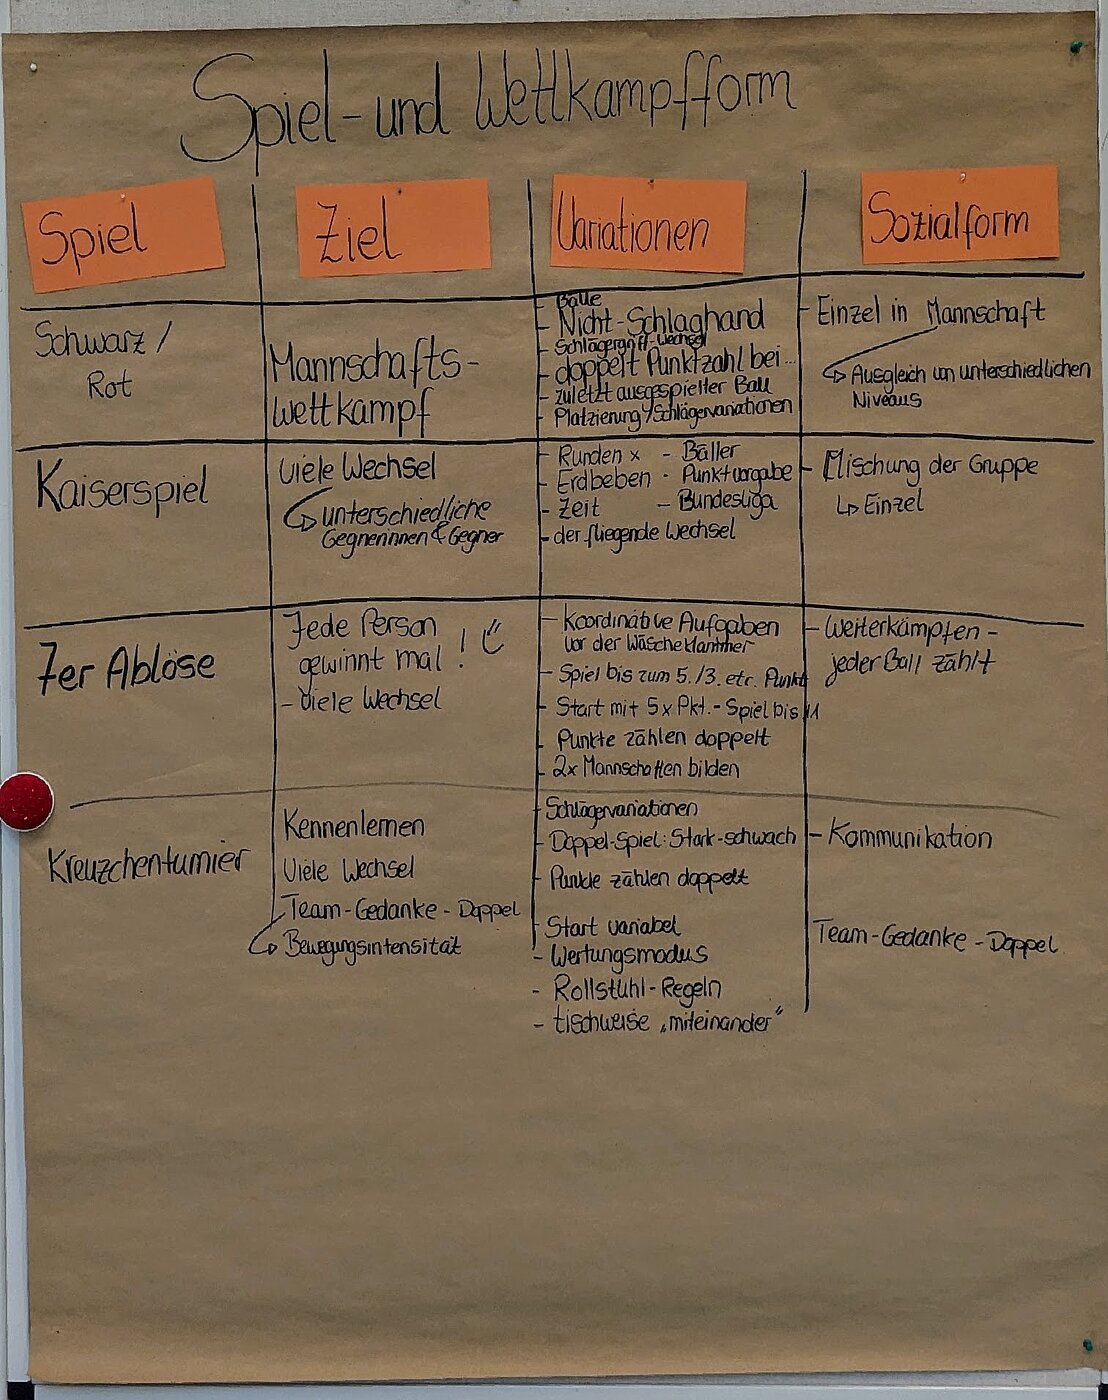 Spiel- und Wettkampfform
Spiel
Ziel
Variationen
Sozialform
Schwarz /
Rot
Mannschafts-
wettkampf
- Bälle
- Nicht-Schlaghand
- Schlägergriff-Wechsel
- doppelt Punktzahl bei...
- zuletzt ausgespielter Ball
- Platzierung / Schlägervariationen
- Einzel in Mannschaft
↳ Ausgleich von unterschiedlichen
Niveaus
Kaiserspiel
viele Wechsel
↳ unterschiedliche
Gegnerinnen & Gegner
- Runden x - Bäller
- Erdbeben - Punktvorgabe
- Zeit - Bundesliga
- der fliegende Wechsel
- Mischung der Gruppe
↳ Einzel
7er Ablöse
Jede Person
gewinnt mal !
- Viele Wechsel
- Koordinative Aufgaben
vor der Wäscheklammer
- Spiel bis zum 5./3. etc. Punkt
- Start mit 5x Pkt.- Spiel bis 11
- Punkte zählen doppelt
- 2x Mannschaften bilden
- Weiterkämpfen -
jeder Ball zählt
Kreuzchenturnier
Kennenlernen
Viele Wechsel
Team-Gedanke - Doppel
↳ Bewegungsintensität
- Schlägervariationen
- Doppel-Spiel: Stark-schwach
- Punkte zählen doppelt
- Start variabel
- Wertungsmodus
- Rollstuhl-Regeln
- tischweise „miteinander"
- Kommunikation
Team-Gedanke - Doppel